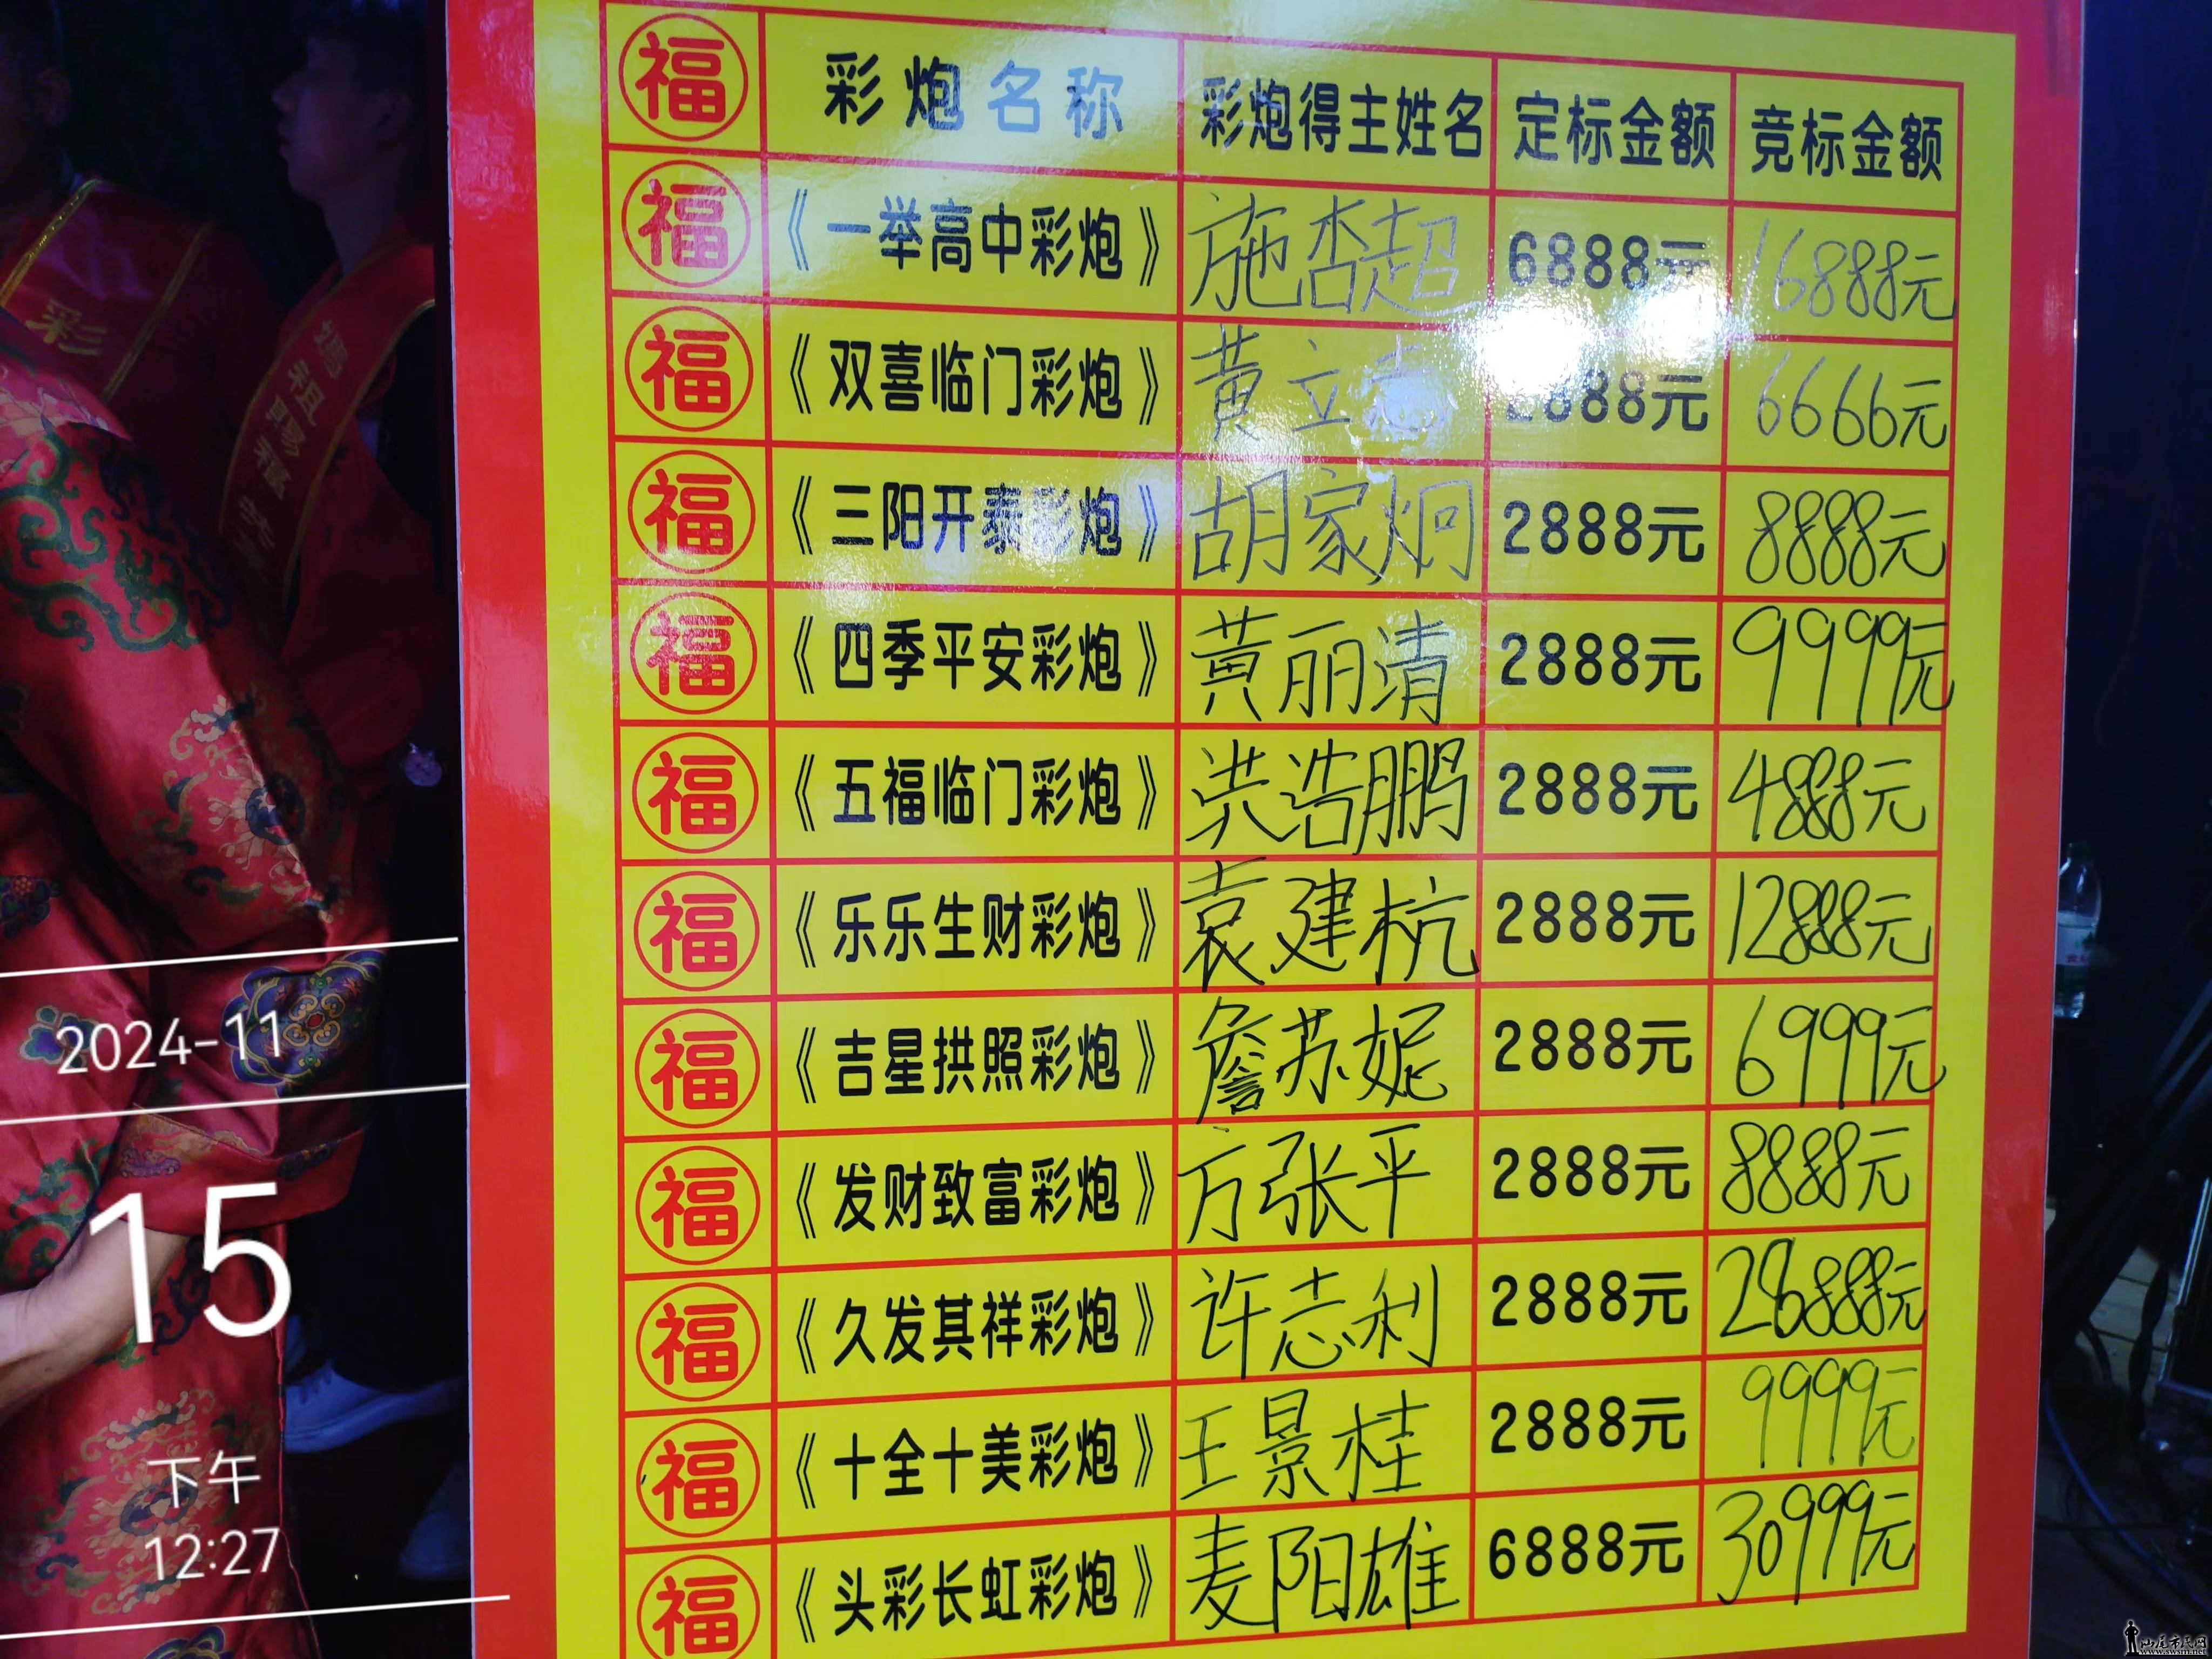 福 彩炮名称 彩炮得主姓名 定标金额 竞标金额
福 《一举高中彩炮》 施杏超 6888元 16888元
福 《双喜临门彩炮》 黄立志 2888元 6666元
福 《三阳开泰彩炮》 胡家炯 2888元 8888元
福 《四季平安彩炮》 黄丽清 2888元 9999元
福 《五福临门彩炮》 洪浩鹏 2888元 4888元
福 《乐乐生财彩炮》 袁建杭 2888元 12888元
福 《吉星拱照彩炮》 詹苏妮 2888元 6999元
福 《发财致富彩炮》 方张平 2888元 8888元
福 《久发其祥彩炮》 许志利 2888元 26888元
福 《十全十美彩炮》 王景桂 2888元 9999元
福 《头彩长虹彩炮》 麦阳雄 6888元 30999元
彩
妈祖赐福
2024-11
15
下午
12:27
汕尾市民网
www.swsm.net